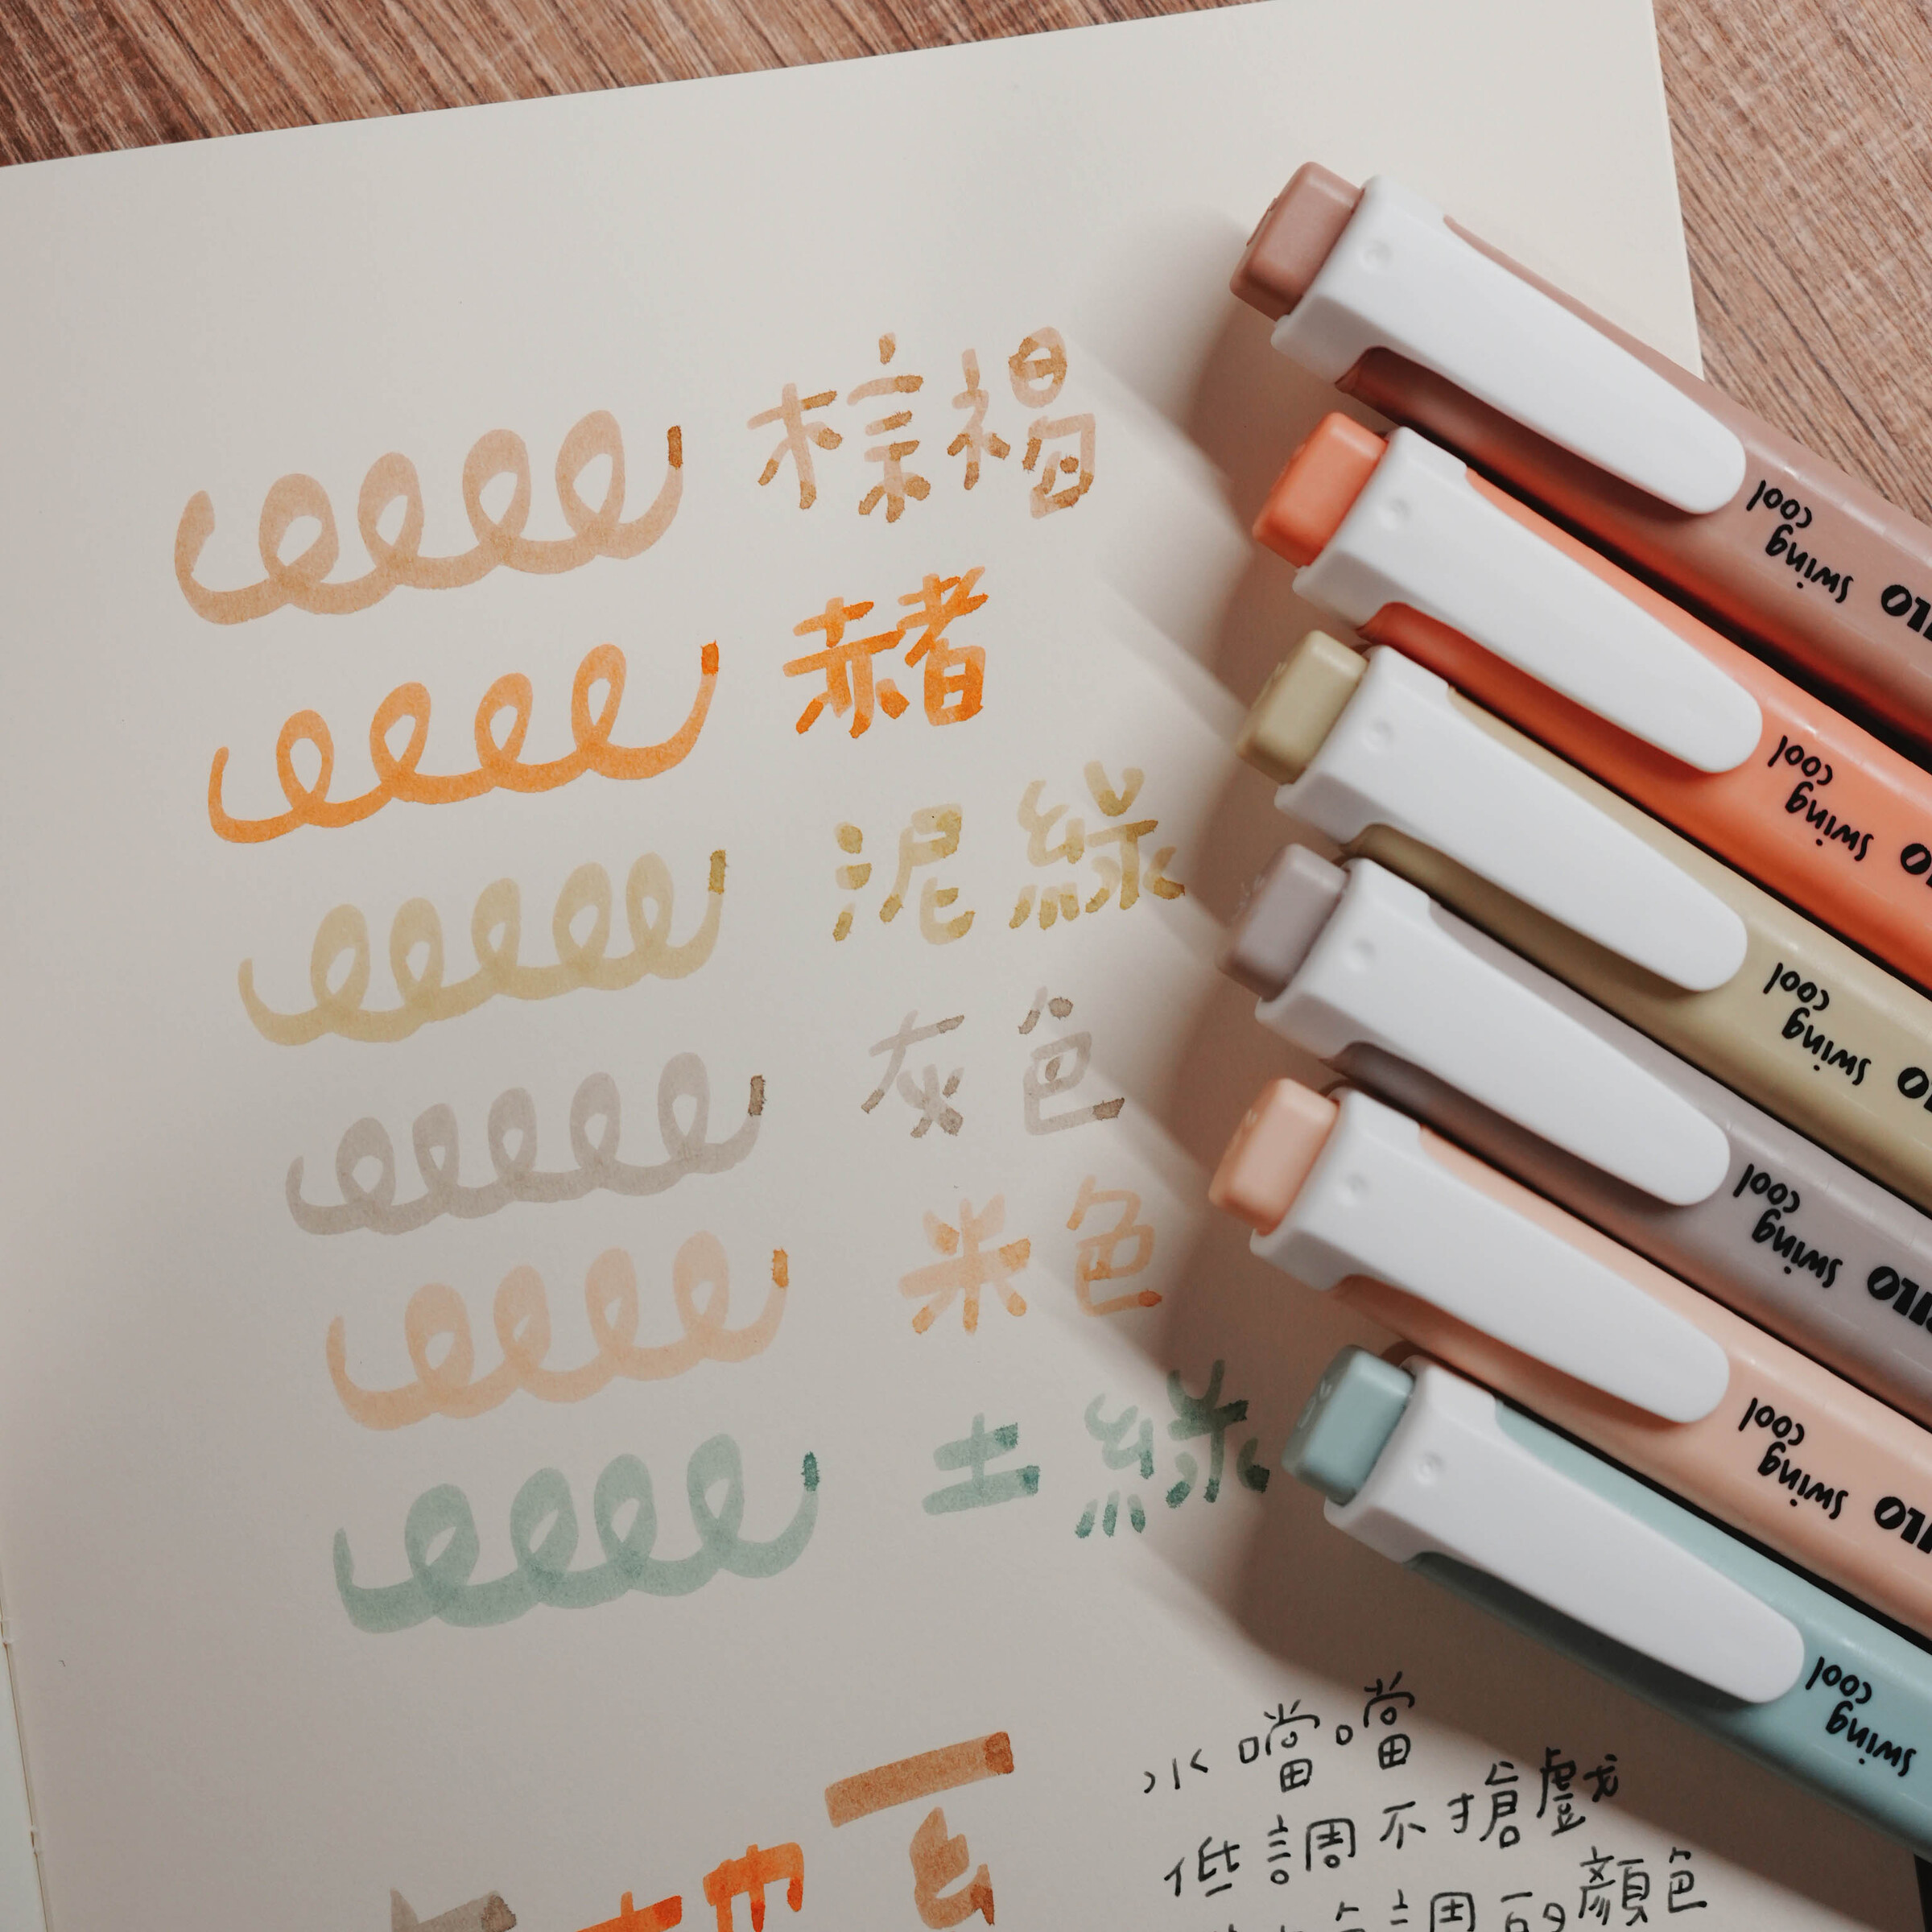 棕褐
赭
泥綠
灰色
米色
土綠
水噹噹
低調不搶戲
色調的顏色
swing cool
swing cool
swing cool
swing cool
swing cool
swing cool